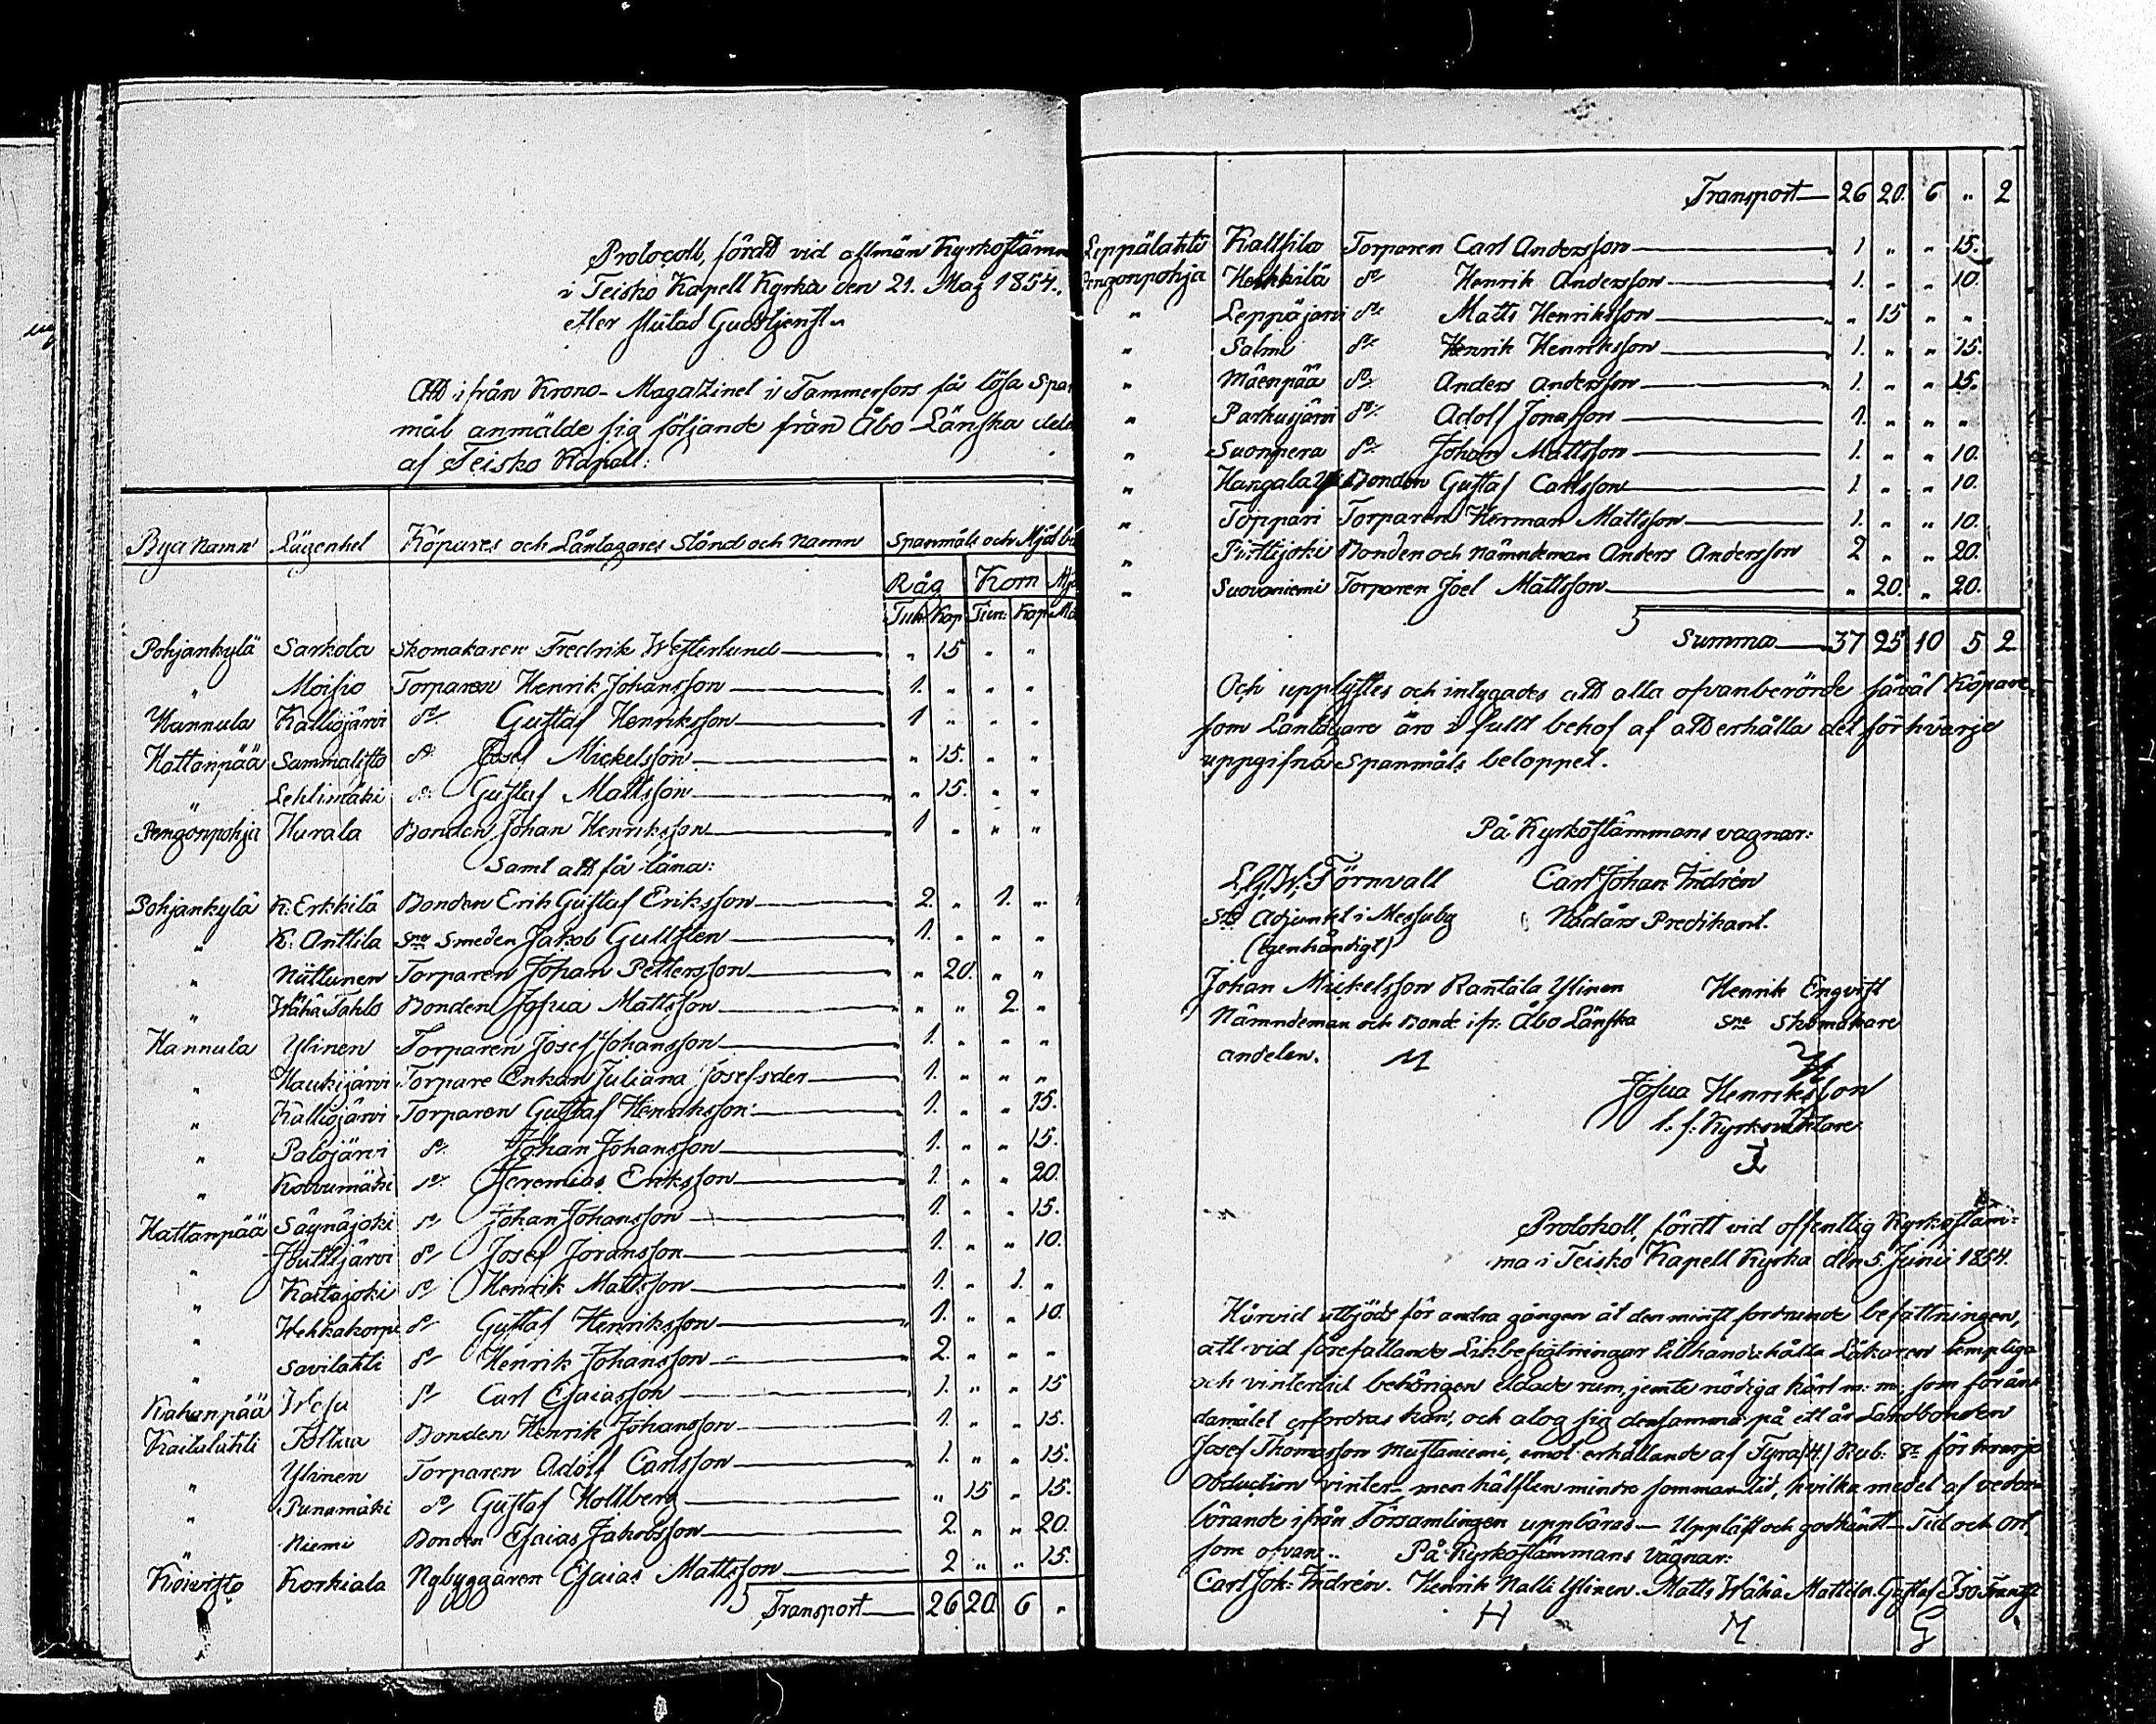 Protocoll, fördt vid allmän Kyrkostäm
i Teisko Kapell Kyrka den 21. Maj 1854.,
efter slutad Gudstjenst.
Att ifrån Krono-Magazinet i Tammerfors få lösa Span
mål anmälde sig följande från Åbo Länska dele
af Teisko Kapell:
Bya Namn Lägenhet Köpares och Låntagares Stånd och Namn Spanmåls och Mjöl be
Råg Korn Mjö
Tun: Kap Tun: Kap
Pohjankylä Sarkola Skomakaren Fredrik Westerlund " 15 " "
" Moisio Torparen Henrik Johansson 1. " " "
Hannula Kalliojärvi d:o Gustaf Henriksson 1 " " "
Hattanpää Sammalisto d:o Josef Mickelsson " 15. " "
" Lehtimäki d:o Gustaf Mattsson " 15. " "
Pengonpohja Hurala Bonden Johan Henriksson 1 " " "
Samt att få låna:
Pohjankylä K: Erkkilä Bonden Erik Gustaf Eriksson 2. " 1. "
" K: Anttila Sne Smeden Jakob Gullsten 1. " " "
" Niittunen Torparen Johan Pettersson " 20. " "
" Wähä Tohlo Bonden Josua Mattsson " " 2. "
Hannula Ylinen Torparen Josef Johansson 1. " " "
" Haukijärvi Torpare Enkan Juliana Josefsder 1. " " "
" Kalliojärvi Torparen Gustaf Henriksson 1. " " 15.
" Palojärvi d:o Johan Johansson 1. " " 15.
" Koivumäki d:o Jeremias Eriksson 1. " " 20.
Hattanpää Säynäjoki d:o Johan Johansson 1. " " 15.
" Houttjärvi d:o Josef Joransson 1. " " 10.
" Kaitajoki d:o Henrik Mattsson 1. " 1. "
" Wehkakorpi d:o Gustaf Henriksson 1. " " 10.
" Savilahti d:o Henrik Johansson 2. " " "
Kahanpää Wesu d:o Carl Esaiasson 1. " " 15
Kaitalahti Pohtua Bonden Henrik Johansson 1. " " 15.
" Ylinen Torparen Adolf Carlsson 1. " " 15.
" Punamäki d:o Gustaf Hollberg " 15 " 15.
" Niemi Bonden Esaias Jakobsson 2. " " 20.
Koivisto Korkiala Nybyggaren Esaias Mattsson 2 " " 15.
Transport 26 20 6 "
Transport 26 20. 6 " 2
Leppälahti Kattfila Torparen Carl Andersson 1 " " 15.
engonpohja Heikkilä d:o Henrik Andersson 1. " " 10.
" Leppäjärvi d:o Matts Henriksson " 15 " "
" Salmi d:o Henrik Henriksson 1. " " 15.
" Mäenpää d:o Anders Andersson 1. " " 15.
" Parkusjärvi d:o Adolf Jonasson 1. " " "
" Suonpera d:o Johan Mattsson 1. " " 10.
" Kangala Bonden Gustaf Carlsson 1 " " 10.
" Toppari Torparen Herman Mattsson 1. " " 10.
" Pirttijoki Bonden och Nämndeman Anders Andersson 2 " " 20.
" Suovaniemi Torparen Joel Mattsson " 20. " 20.
Summa 37 25 10 5 2
Och upplystes och intygades att alla ofvanberörde såväl Köpare
som Låntagare äro i fullt behof af att erhålla det för hvarje
uppgifna Spanmåls beloppet.
På Kyrkostämmans vägnar:
L.G.W. Törnvall Carl Johan Indrén
Adjunkt i Messuby Nådårs Predikant.
(egenhändigt)
Johan Mickelsson Rantala Ylinen Henrik Engvist
Nämndeman och Bonde ifr: Åbo Länska Sne Skomakare
andelen. M H
Josua Henriksson
t. f. Kyrkovaktare
I
Protokoll, fördt vid offentlig Kyrkostäm-
ma i Teisko Kapell Kyrka den 5. Juni 1854.
Härvid utbjöds för andra gången åt den minst fordrande befattningen,
att vid förefallande Likbesigtningar tillhandahålla Läkaren lämpliga
och vintertid behörigen eldade rum, jemte nödiga kärl m: m: som för än-
damålet erfordras kan, och åtog sig densamma på ett år Landbonden
Josef Thomasson Mustaniemi, emot erhållande af Fyra (4) Rub: Sr för hvarje
Obduction vinter- men hälften mindre sommar-tid, hvilka medel af vedor-
börande ifrån Församlingen uppbäras. — Uppläst och godkändt. Tid och Ort
som ofvan. På Kyrkostämmans vägnar:
Carl Joh: Indrén. Henrik Nalli Ylinen. Matts Wähä Mattila. Gustaf Iso
H M G